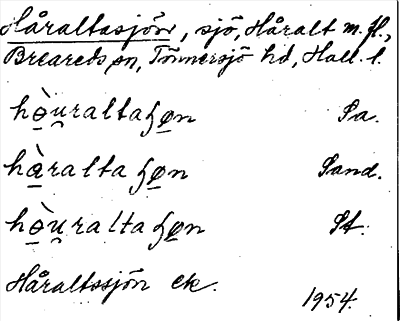 Håraltasjön, sjö, Håralt m. fl.,
Breareds sn, Tönnersjö hd, Hall. l.
hòu̯raltaɧøn Sa.
hàraltaɧøn Sand.
hòu̯raltaɧøn St.
Håraltssjön ek.
1954.